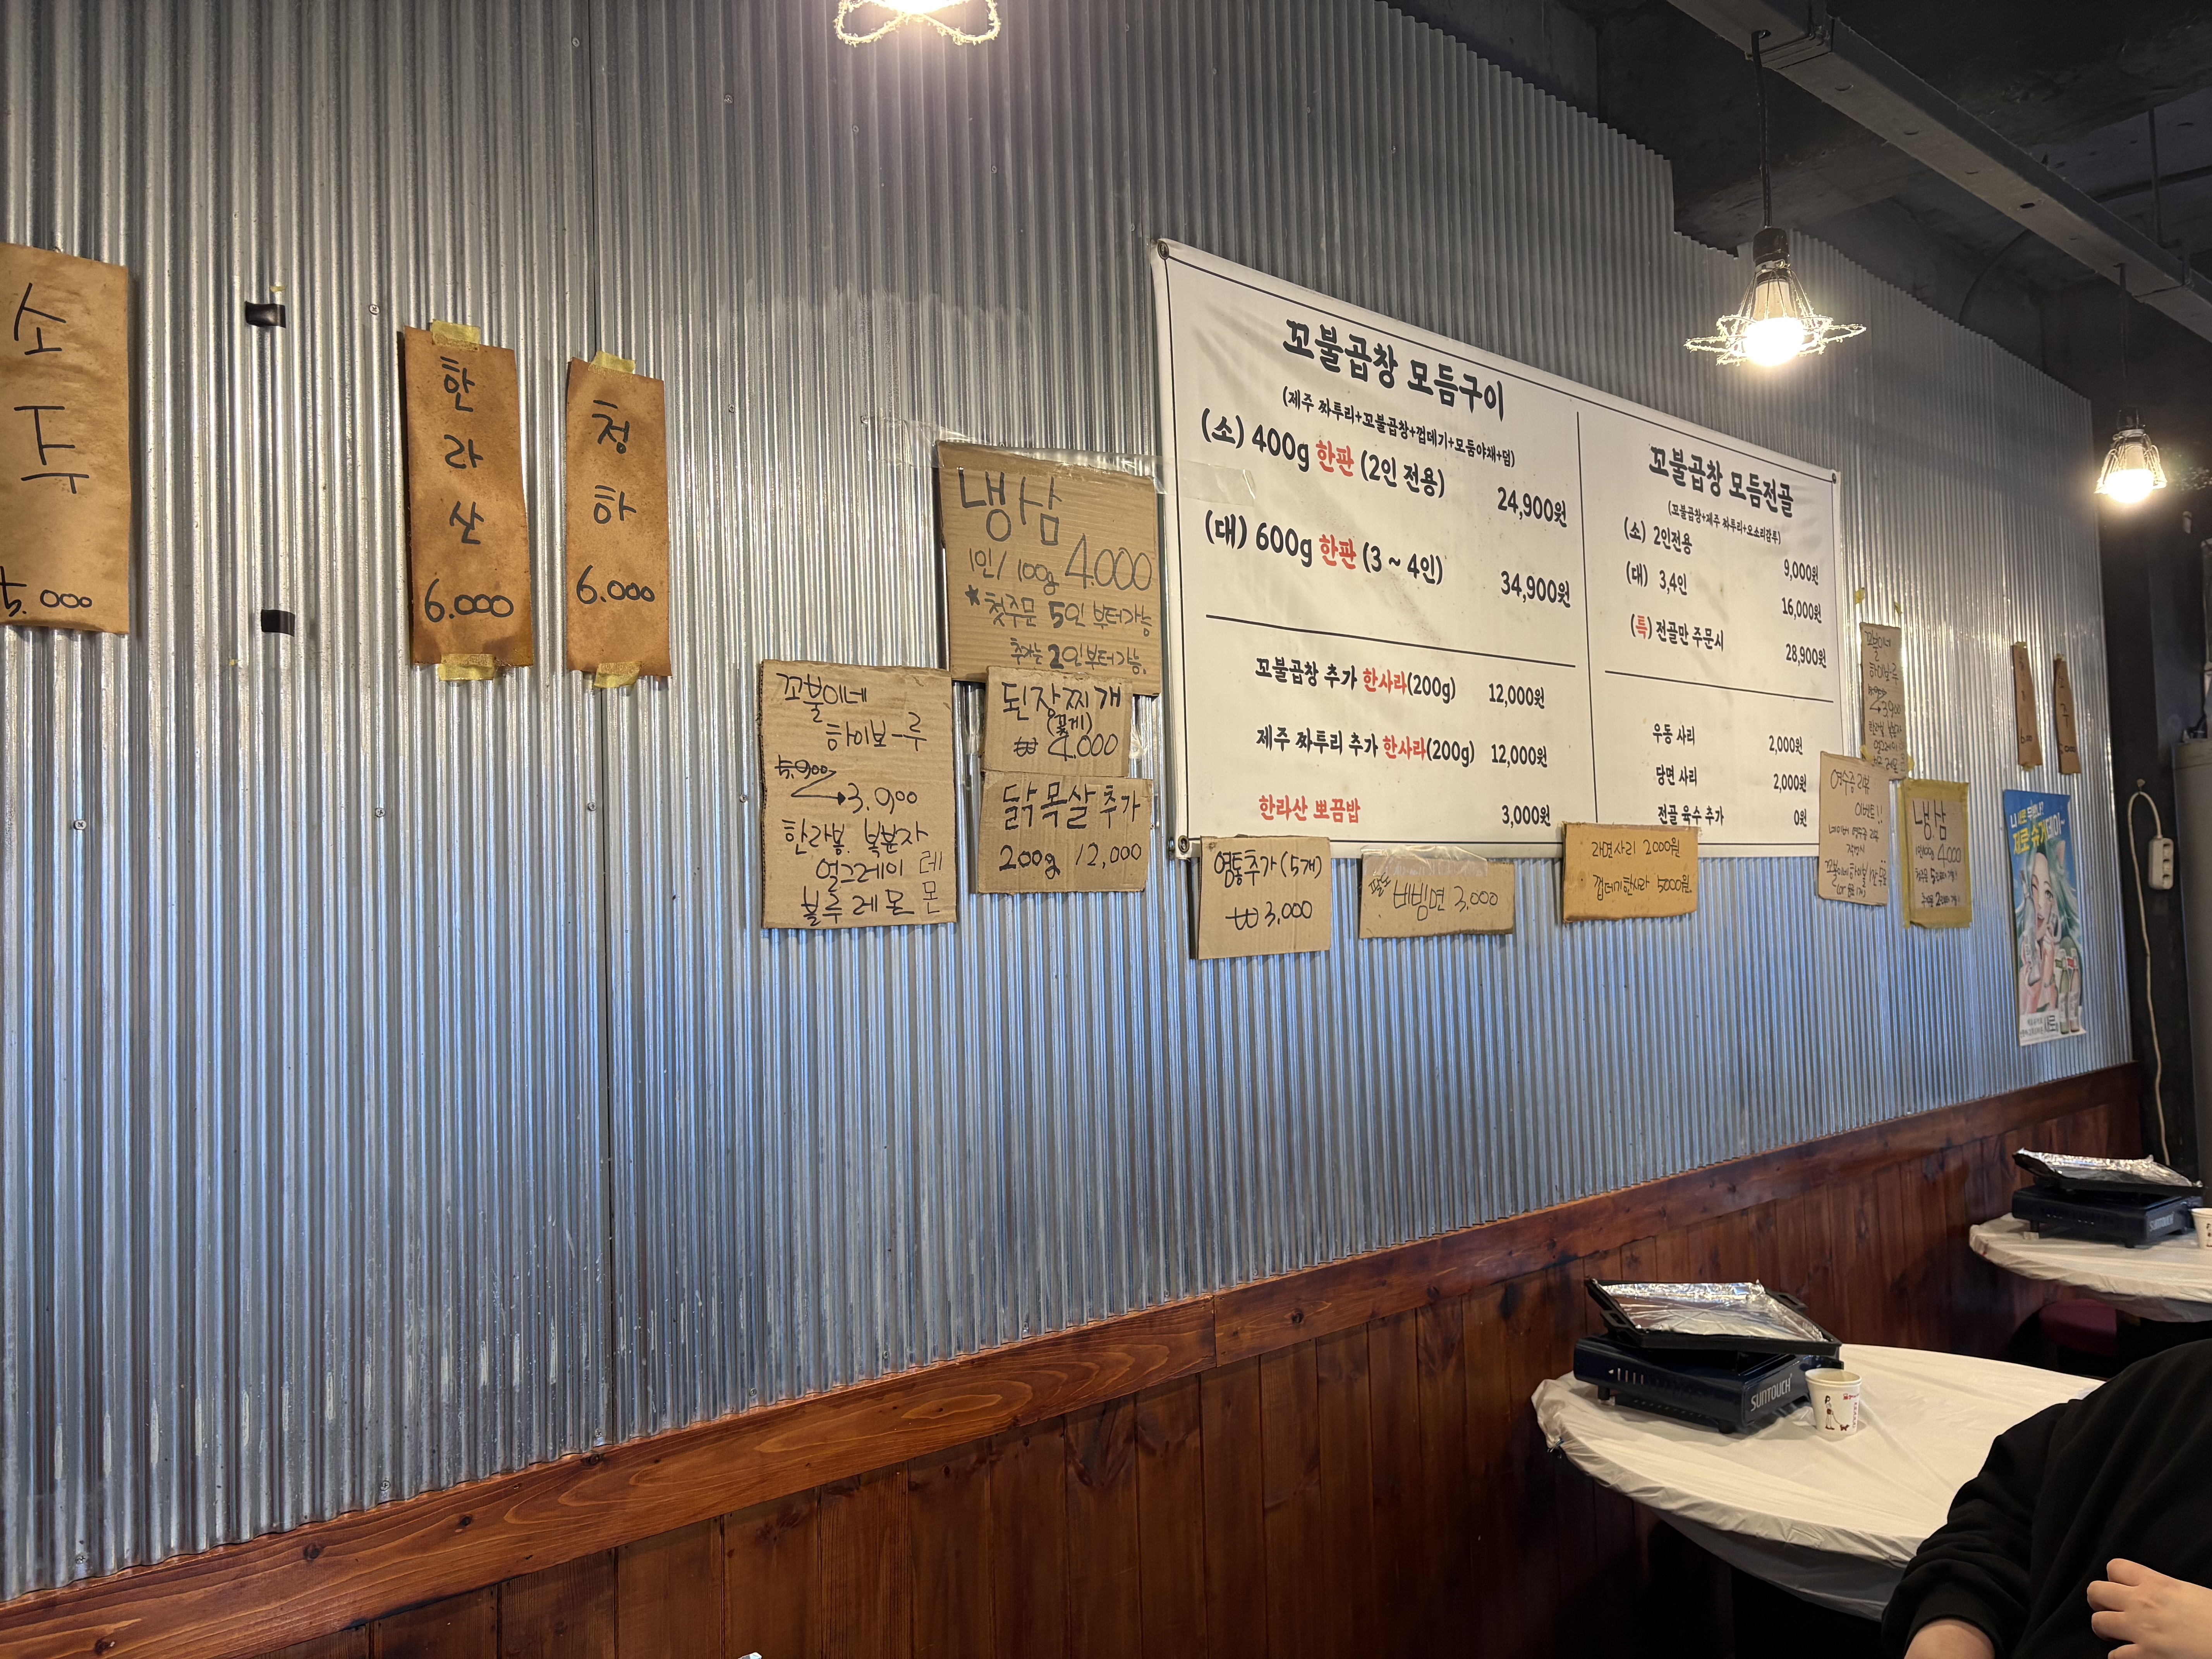 소
주
5.000
한
라
산
6.000
청
하
6.000
냉삼
1인/100g 4.000
*첫주문 5인 부터가능
추가는 2인부터가능.
꼬불이네
하이보-루
5.900
→3.900
한라봉. 복분자
얼그레이 레
블루레몬 몬
된장찌개
(꽃게)
₩ 4.000
닭목살추가
200g 12,000
꼬불곱창 모듬구이
(제주 짜투리+꼬불곱창+껍데기+모듬야채+덤)
(소) 400g 한판 (2인 전용)
24,900원
(대) 600g 한판 (3 ~ 4인)
34,900원
꼬불곱창 추가 한사라(200g) 12,000원
제주 짜투리 추가 한사라(200g) 12,000원
한라산 뽀끔밥 3,000원
꼬불곱창 모듬전골
(꼬불곱창+제주 짜투리+오소리감투)
(소) 2인전용
9,000원
(대) 3,4인
16,000원
(특) 전골만 주문시
28,900원
우동 사리 2,000원
당면 사리 2,000원
전골 육수 추가 0원
염통추가(5개)
₩3,000
비빔면 3,000
라면사리 2000원
껍데기한사라 5000원.
꼬불이네
하이보루
3.900
영수증 리뷰
이벤트!!
냉삼
1인100g 4.000
새로
SUNTOUCH
SUNTOUCH